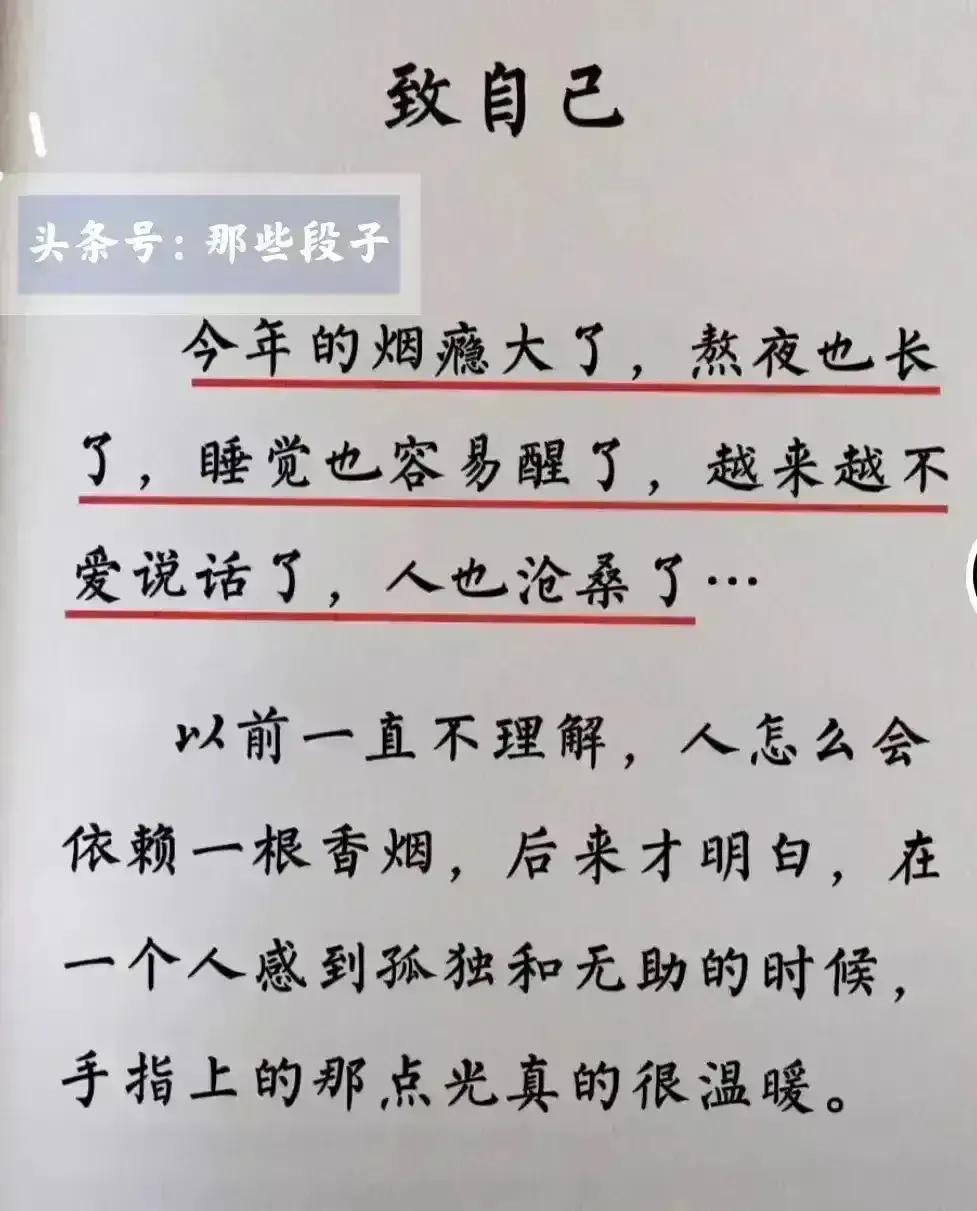 致自己
头条号：那些段子
今年的烟瘾大了，熬夜也长
了，睡觉也容易醒了，越来越不
爱说话了，人也沧桑了…
以前一直不理解，人怎么会
依赖一根香烟，后来才明白，在
一个人感到孤独和无助的时候，
手指上的那点光真的很温暖。